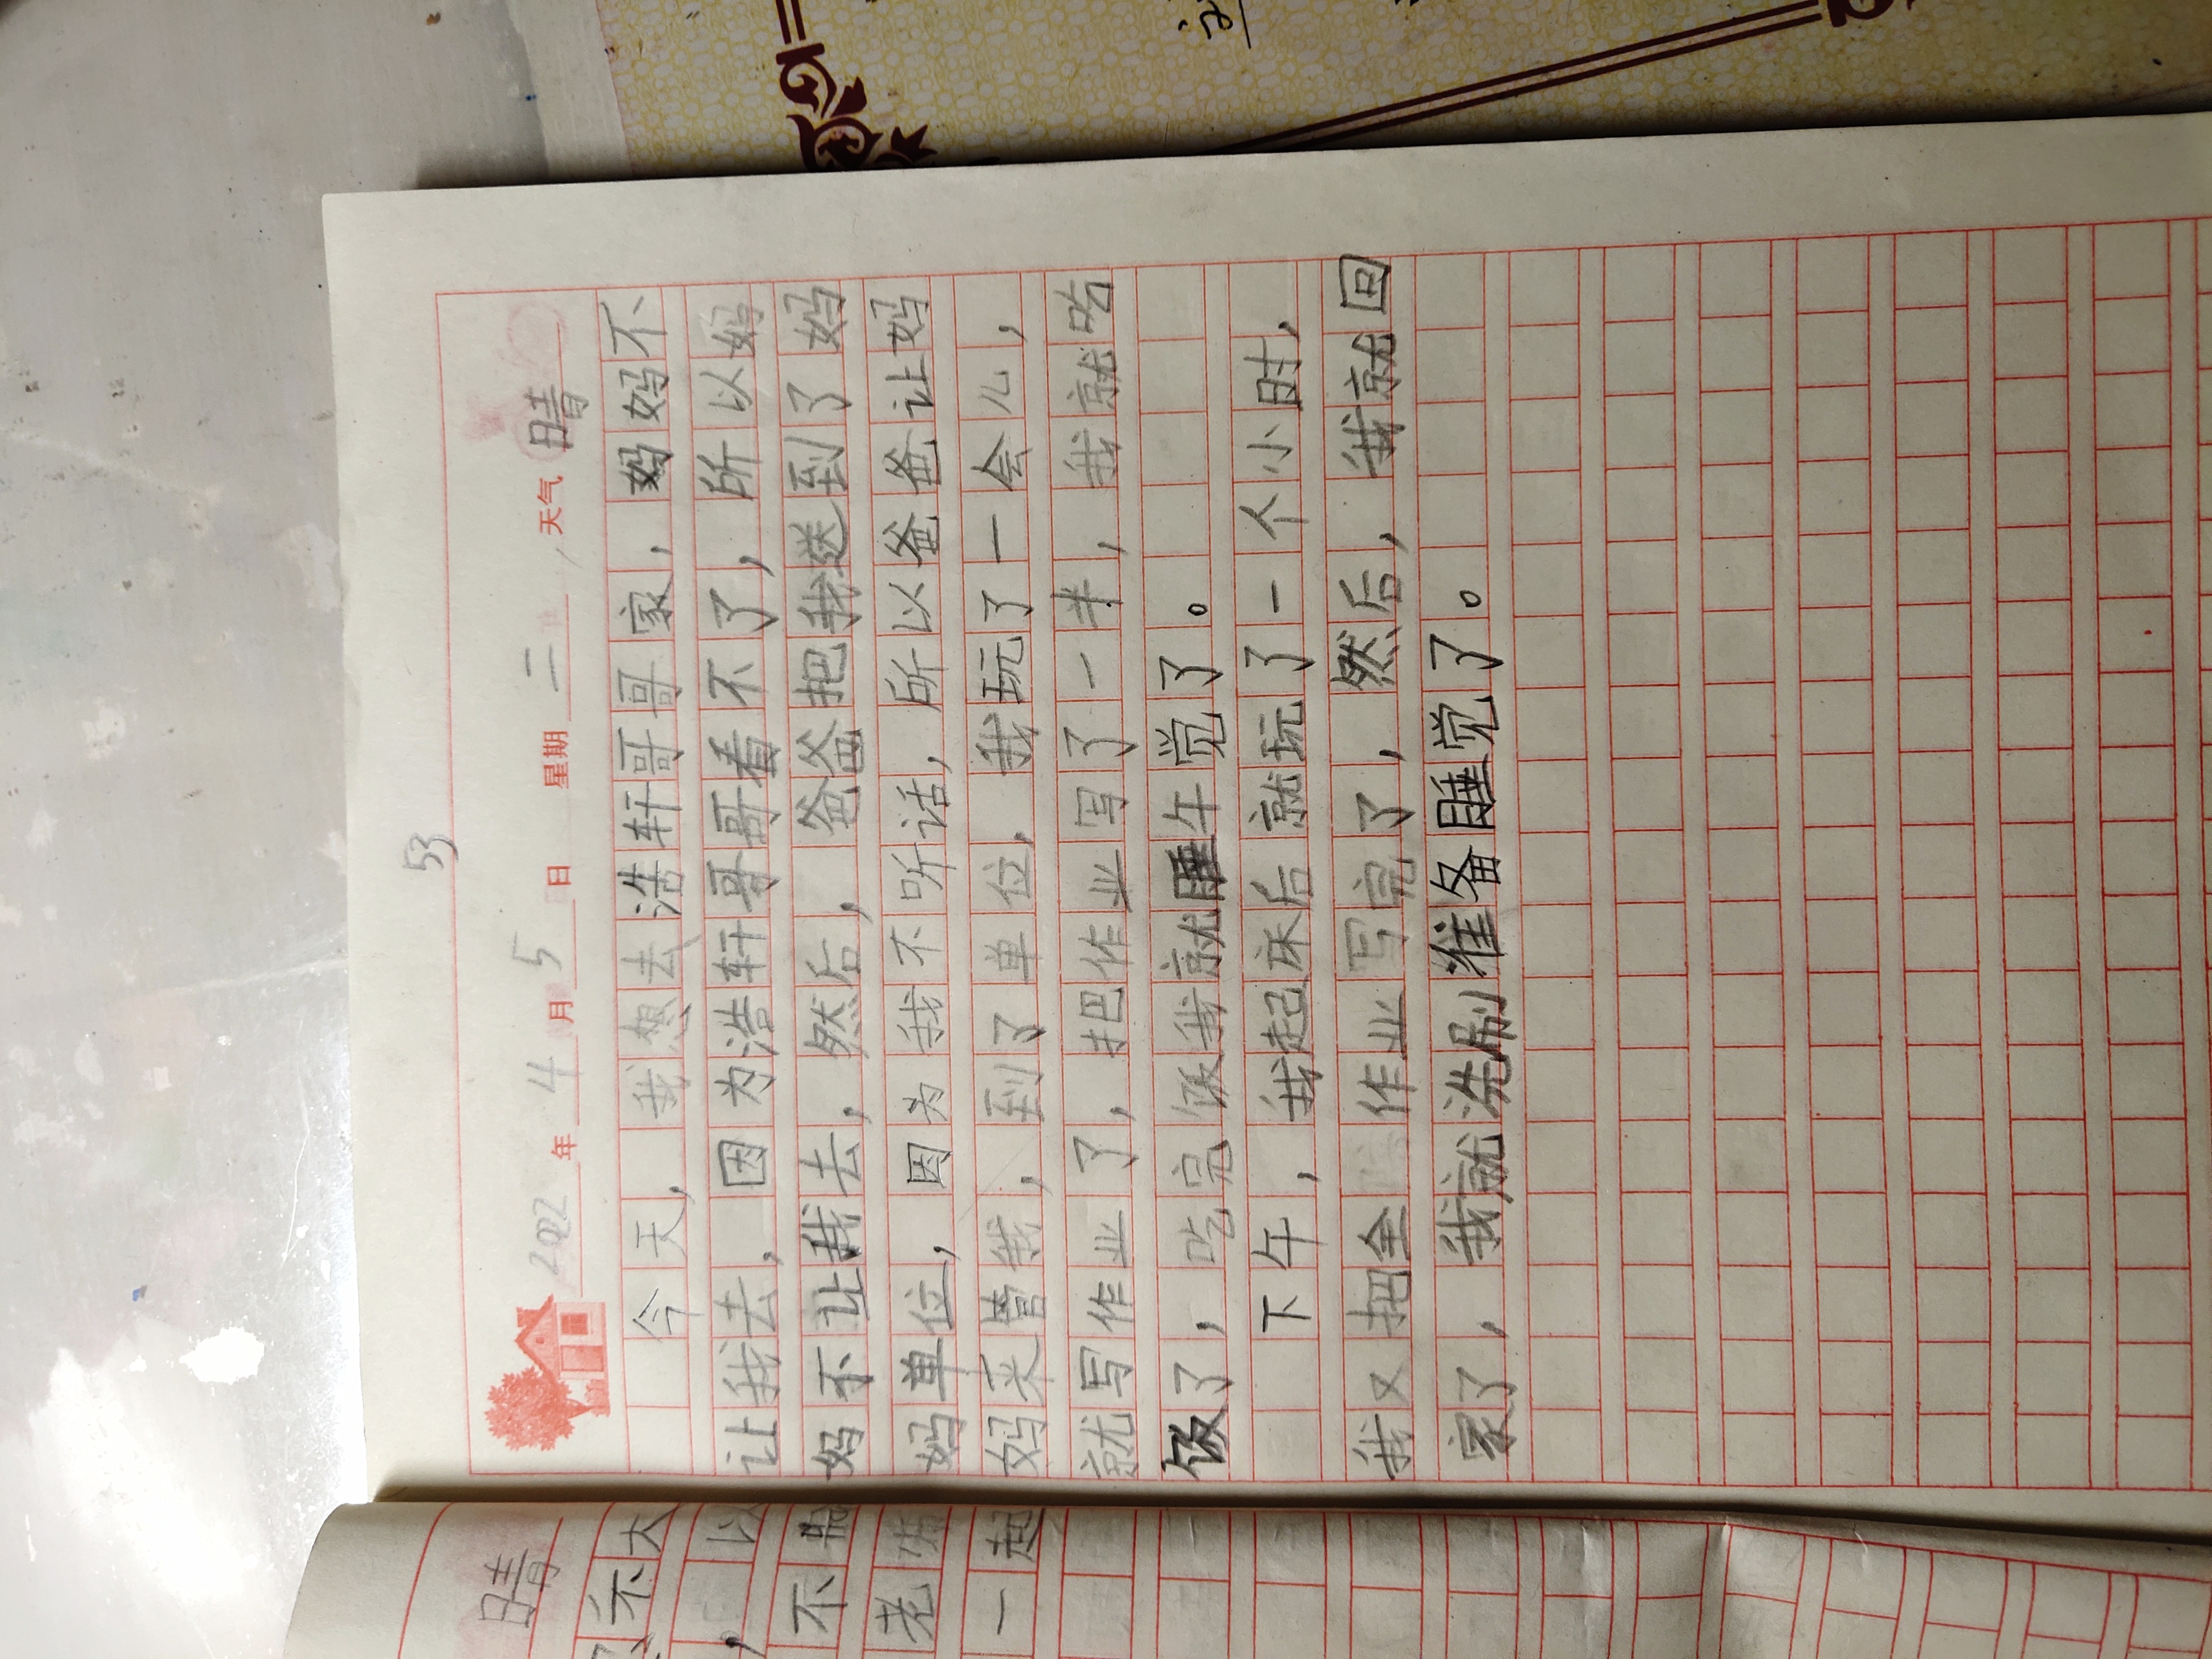 53
2022年4月5日 星期二 天气晴
今天，我想去浩轩哥哥家，妈妈不
让我去，因为浩轩哥哥看不了，所以妈
妈不让我去，然后，爸爸把我送到了妈
妈单位，因为我不听话，所以爸爸让妈
妈来管我，到了单位，我玩了一会儿，
就写作业了，把作业写了一半，我就吃
饭了，吃完饭我就睡午觉了。
下午，我起床后就玩了一个小时，
我又把全作业写完了，然后，我就回
家了，我就洗刷准备睡觉了。
晴
不大
，以
不
老
一起